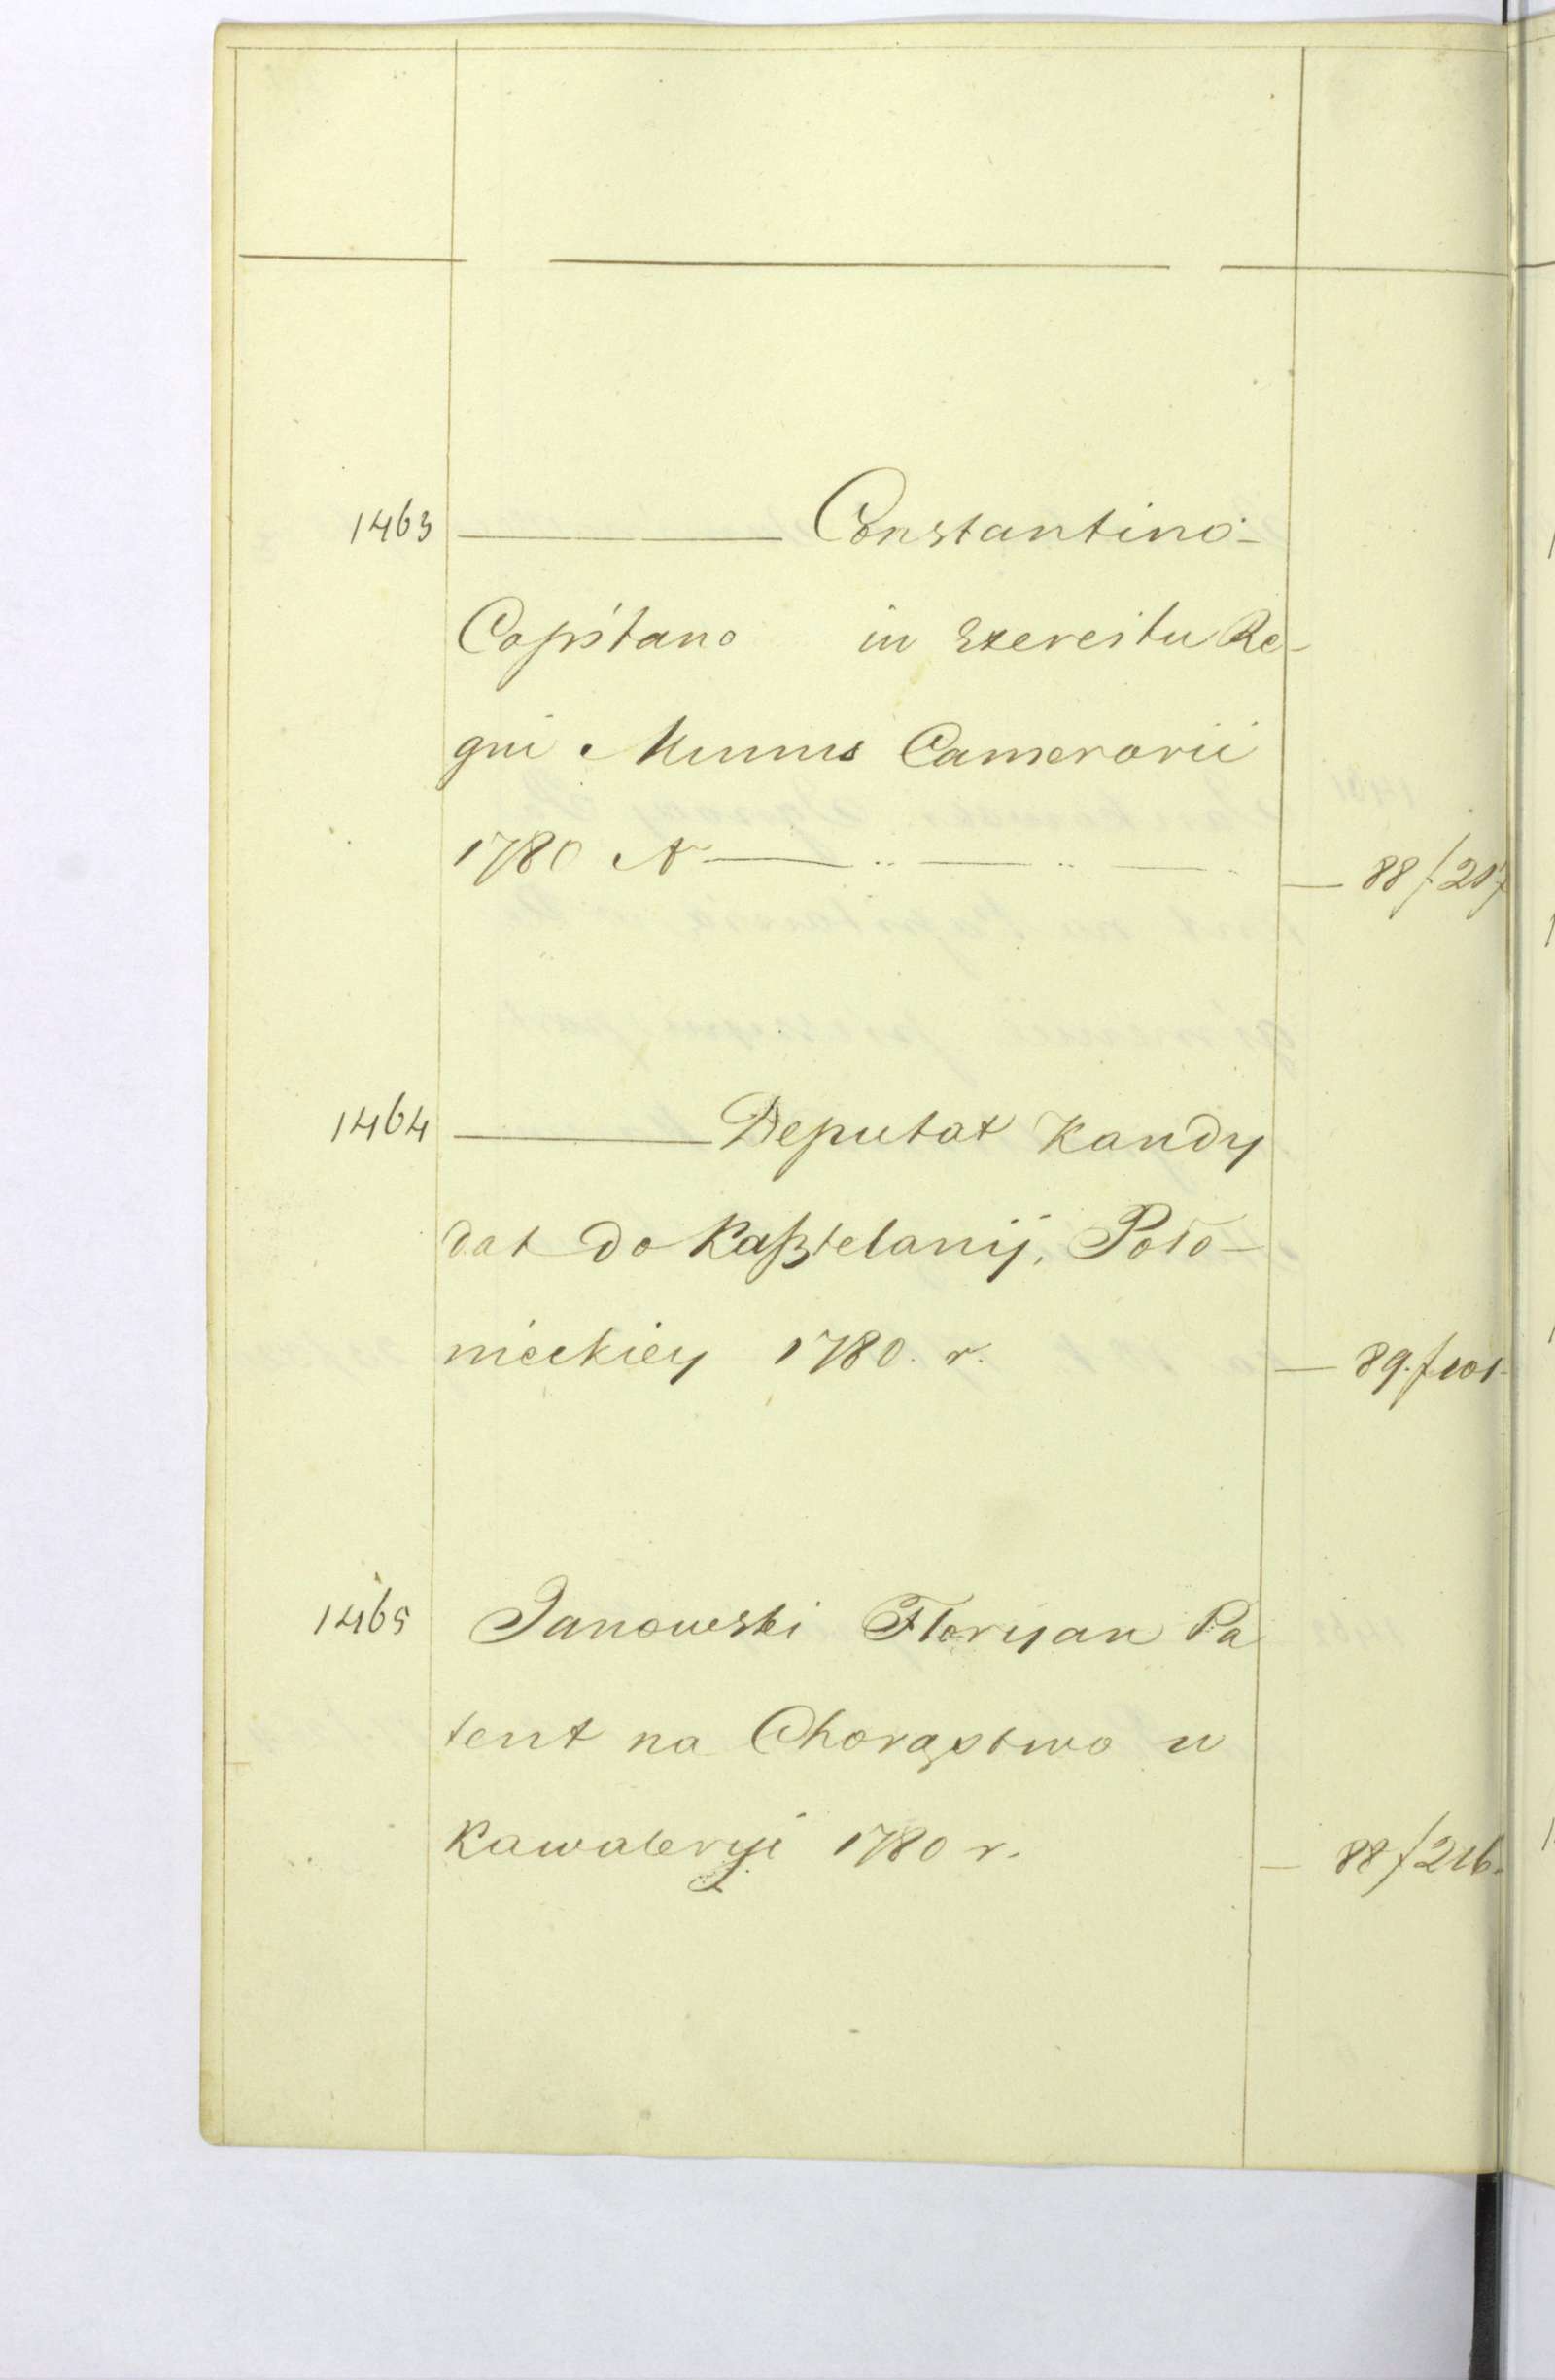 1463 ——— Constantino
Capitano in Exercitu Re-
gni Munus Camerarii
1780 A — .. — .. — — 88 f 217
1464 ——— Deputat Kandy
dat do Kasztelanij, Poło-
nieckiey 1780. r. — 89. f 101.
1465 Janowski Floryan Pa
tent na Chorąstwo w
Kawaleryi 1780 r. — 88 f 216.